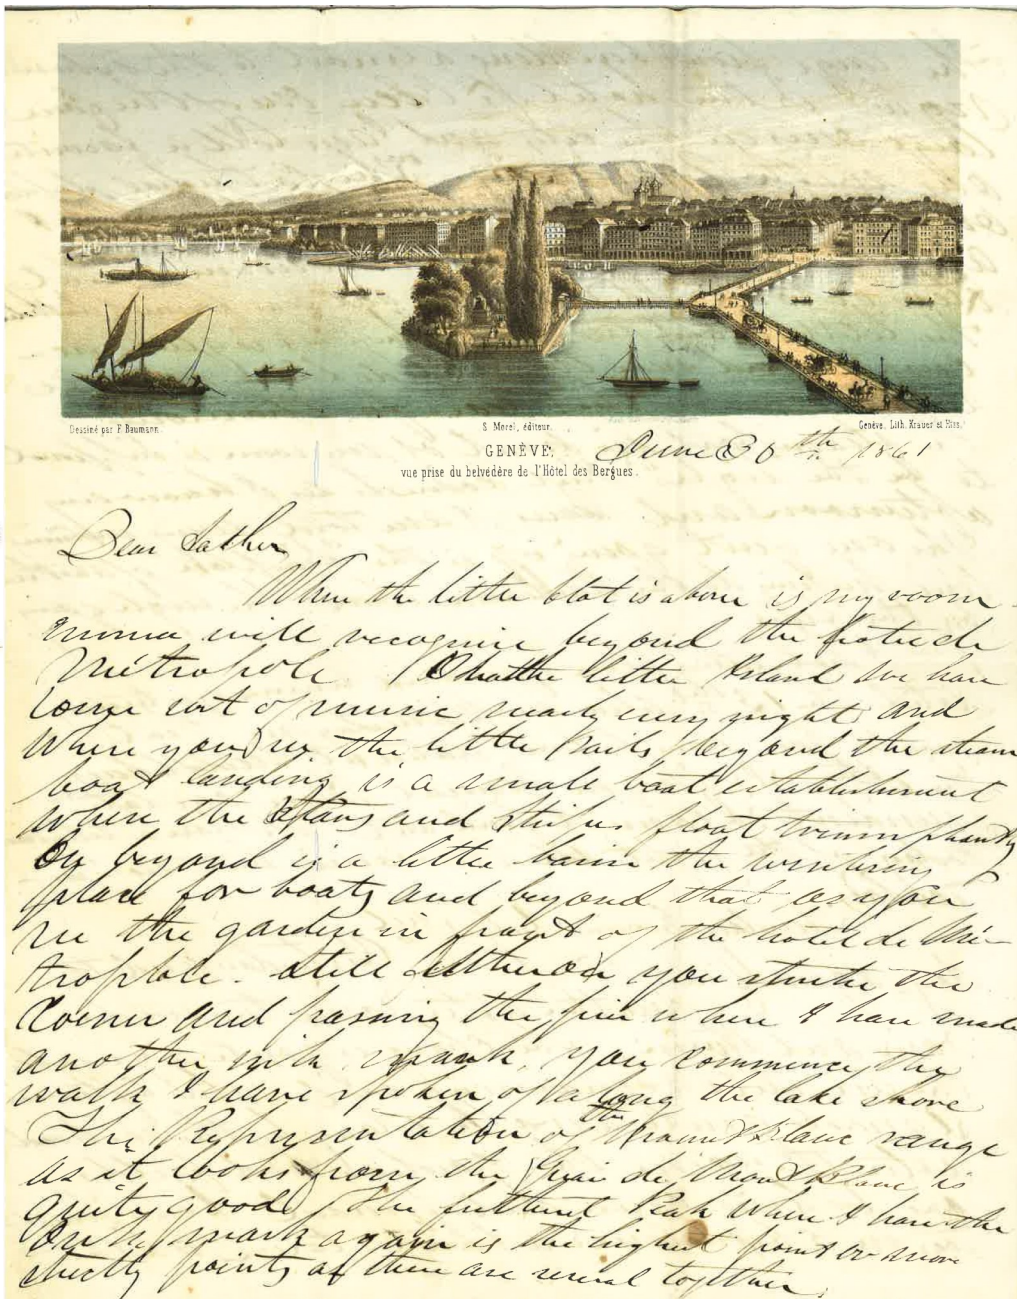 Dessiné par F. Baumann.
S. Morel, éditeur.
Genève, Lith. Krauer et Riss.
GENÈVE,
vue prise du belvédère de l'Hôtel des Bergues.
June 30th 1861
Dear Father
Where the little blot is above is my room
Emma will recognize beyond the hotel de
Métropole. On the little Island we have
some sort of music nearly every night and
where you see the little sails beyond the steam
boat landing is a small boat establishment
where the Stars and Stripes float triumphantly
On beyond is a little basin the wintering
place for boats and beyond that as you
see the garden in front of the hotel de Mé-
tropole. still you strike the
corner and passing the pier where I have made
another ink mark, you commence the
walk I have spoken of along the lake shore
The Representation of the Mount Blanc range
as it looks from the Quai de Mont Blanc is
quite good. The furthest Peak where I have the
ink mark again is the highest point or more
strictly points as there are several together.